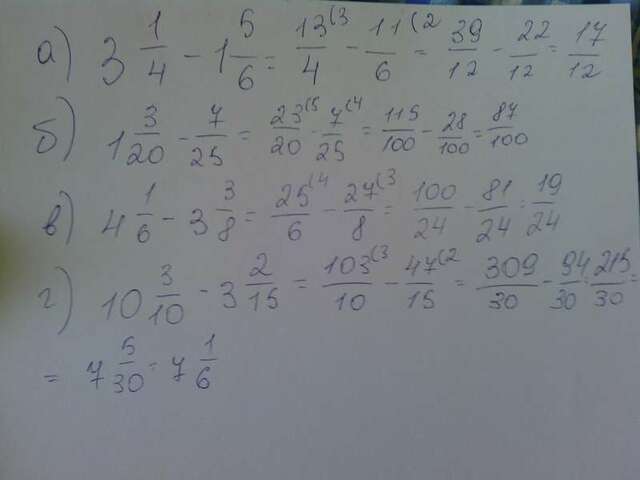 а) 3 1/4 - 1 5/6 = 13(3/4 - 11(2/6 = 39/12 - 22/12 = 17/12
б) 1 3/20 - 7/25 = 23(5/20 - 7(4/25 = 115/100 - 28/100 = 87/100
в) 4 1/6 - 3 3/8 = 25(4/6 - 27(3/8 = 100/24 - 81/24 = 19/24
г) 10 3/10 - 3 2/15 = 103(3/10 - 47(2/15 = 309/30 - 94/30 = 215/30 =
= 7 5/30 = 7 1/6